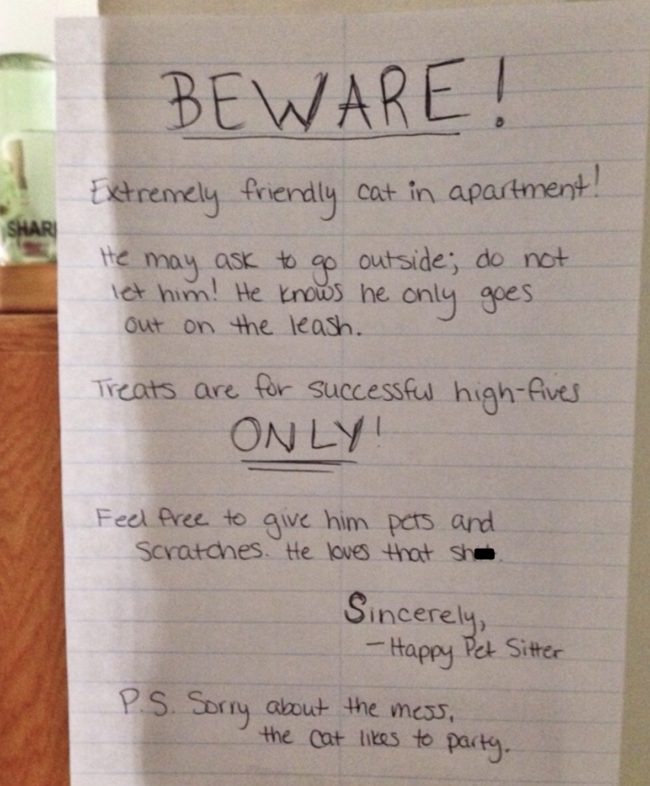 BEWARE!
Extremely friendly cat in apartment!
He may ask to go outside; do not
let him! He knows he only goes
out on the leash.
Treats are for successful high-fives
ONLY!
Feel free to give him pets and
scratches. He loves that sh
Sincerely,
- Happy Pet Sitter
P.S. Sorry about the mess,
the cat likes to party.
SHAR